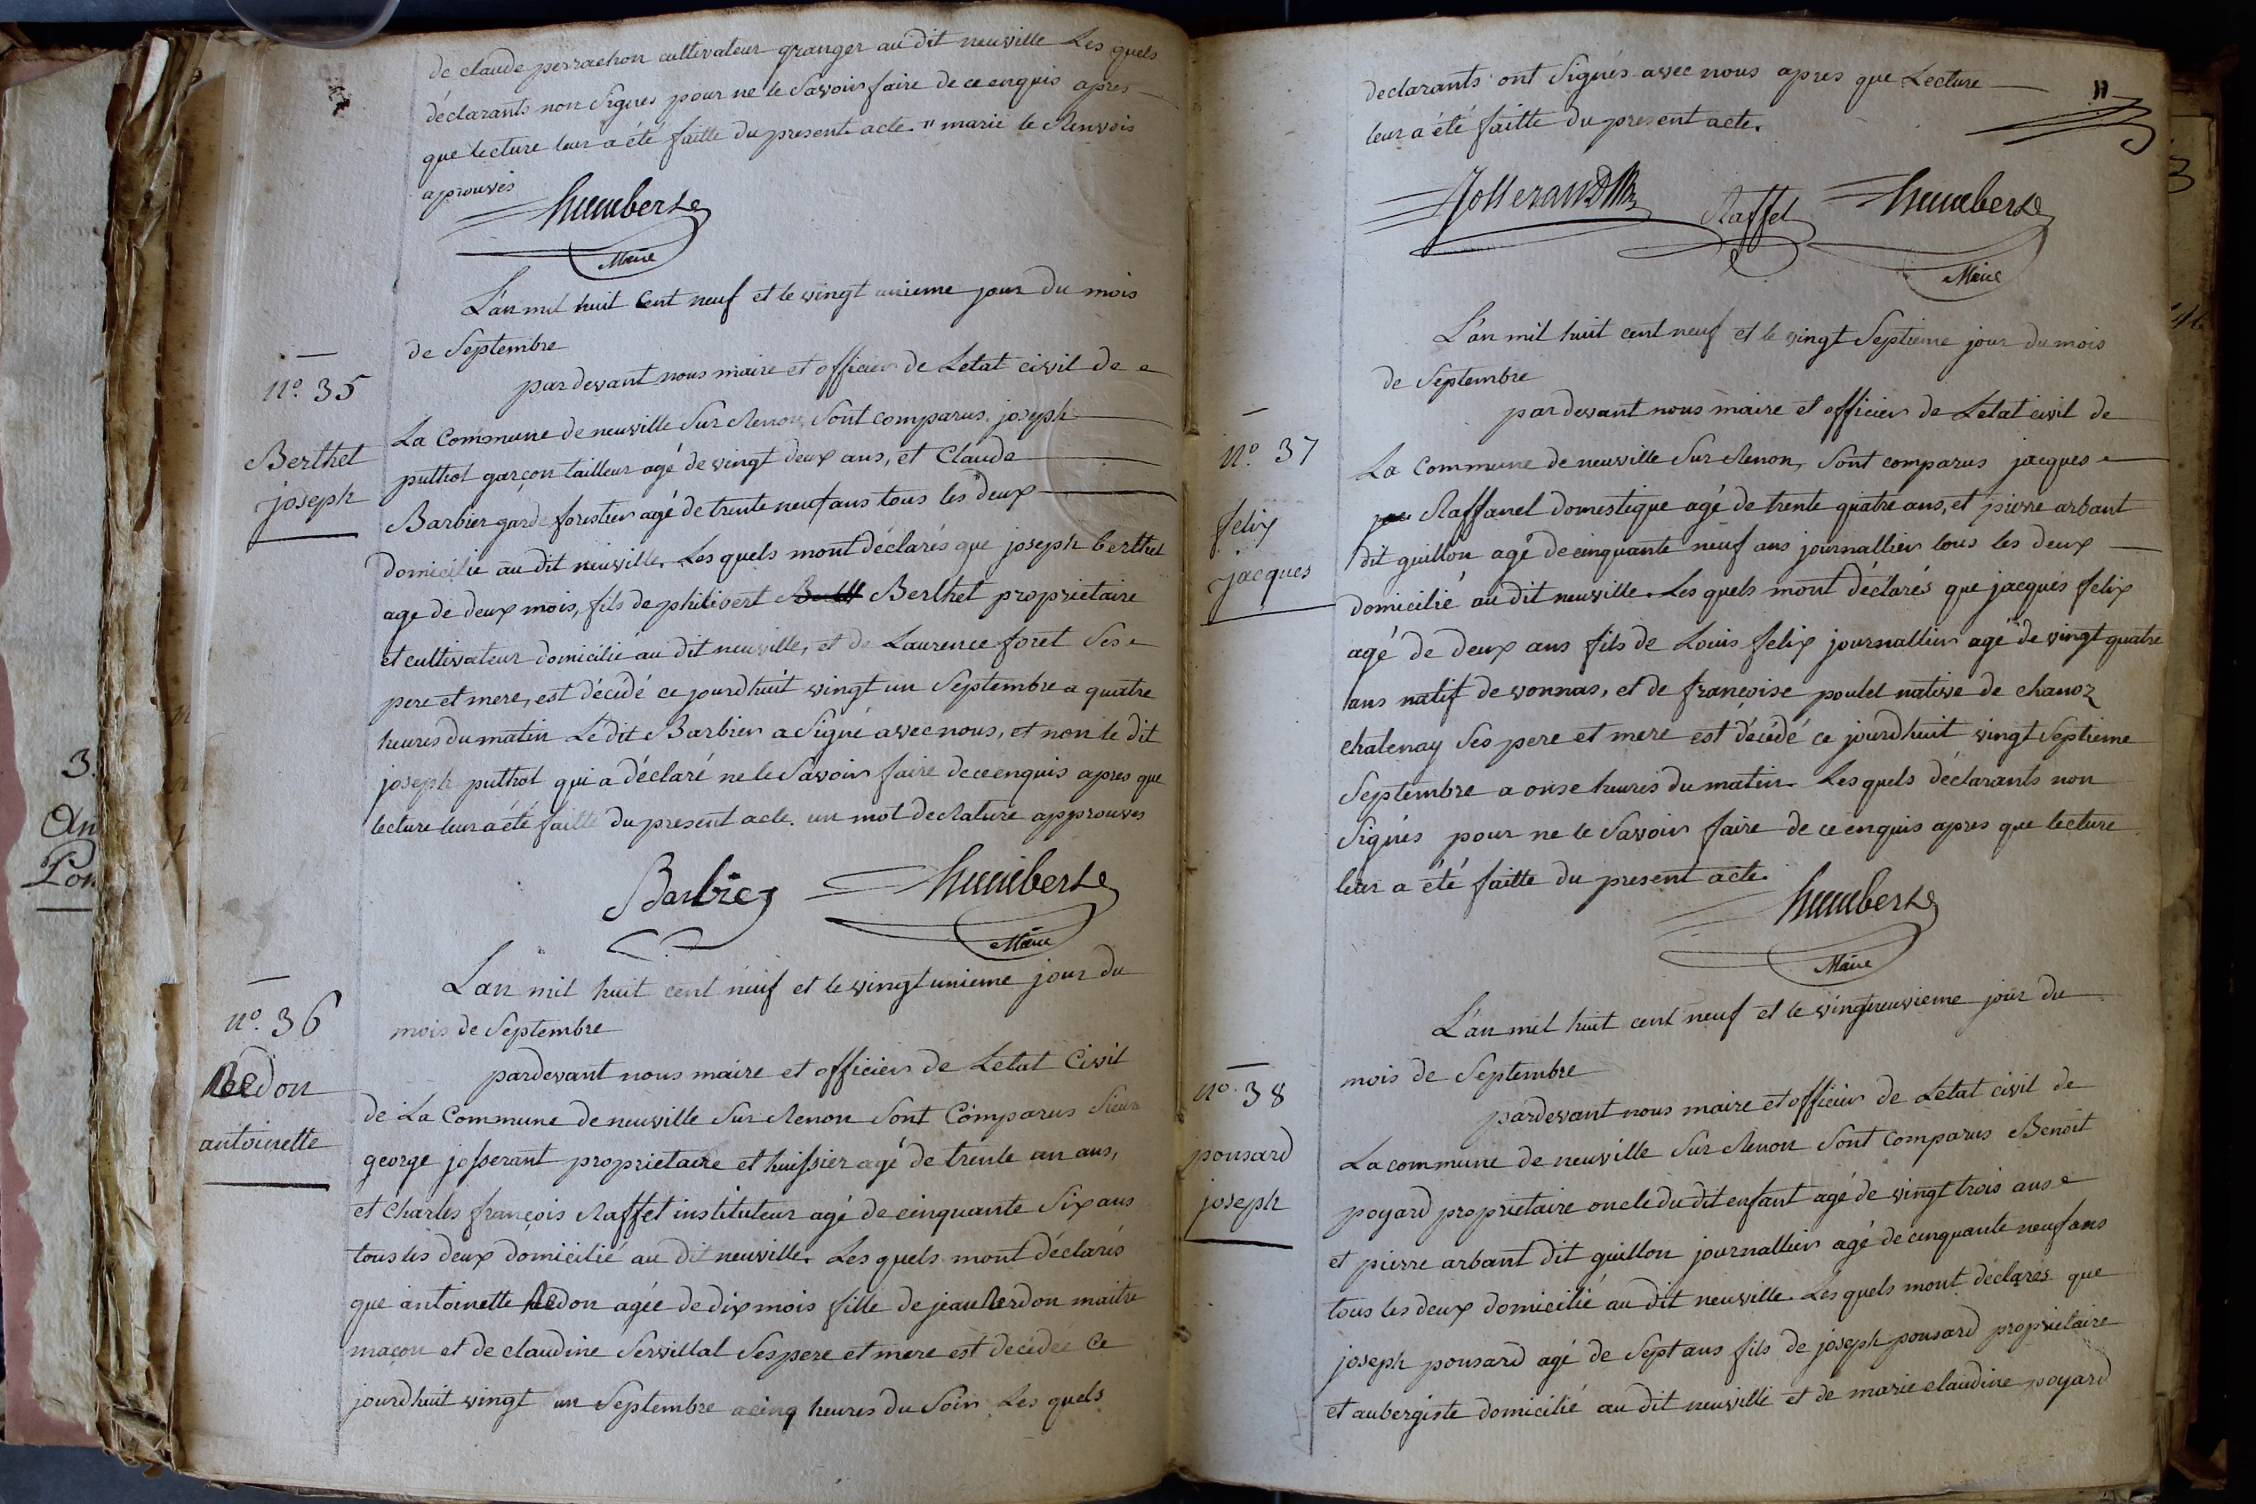 de claude perrachon cultivateur granger au dit neuville Les quels
déclarants non Signés pour ne le Savoir faire de ce enquis apres
que lecture leur a été faitte du present acte. " marie le Renvois
aprouvés
humbert
Maire
L'an mil huit Cent neuf et le vingt unieme jour du mois
de Septembre
n.o 35
Berthet
joseph
par devant nous maire et officier de Letat civil de
La Commune de neuville Sur Renon, Sont comparus joseph
puthot garçon tailleur agé de vingt deux ans, et Claude
Barbier garde forestier agé de trente neuf ans tous les deux
domicilié au dit neuville. Les quels mont déclarés que joseph berthet
age de deux mois, fils de philivert Berthet proprietaire
et cultivateur domicilié au dit neuville, et de Laurence foret Ses
pere et mere, est décédé ce jourdhuit vingt un Septembre a quatre
heures du matin Le dit Barbier a Signé avec nous, et non le dit
joseph puthot qui a déclaré ne le Savoir faire de ce enquis apres que
lecture leur a été faitte du present acte. un mot de Rature approuvés
Barbier humbert
Maire
L'an mil huit cent neuf et le vingt unieme jour du
mois de Septembre
n.o 36
Redon
antoinette
pardevant nous maire et officier de Letat Civil
de La Commune de neuville Sur Renon Sont Comparus Sieur
george josserant proprietaire et huissier agé de trente un ans,
et Charles françois Raffet instituteur agé de cinquante Six ans
tous les deux domicilié au dit neuville. Les quels mont déclarés
que antoinette Redon agée de dix mois fille de jean Redon maitre
maçon et de claudine Servillat Ses pere et mere est décédée Ce
jourdhuit vingt un Septembre a cinq heures du Soir Les quels
declarants ont Signés avec nous apres que Lecture
leur a été faitte du present acte.
Josserand Raffet humbert
Maire
L'an mil huit cent neuf et le vingt Septieme jour du mois
de Septembre
n.o 37
felix
jacques
par devant nous maire et officier de Letat civil de
La Commune de neuville Sur Renon, Sont comparus jacques
Raffanel domestique agé de trente quatre ans, et pierre arbant
dit guillon agé de cinquante neuf ans journallier tous les deux
domicilié au dit neuville. Les quels mont déclarés que jacques felix
agé de deux ans fils de Louis felix journallier agé de vingt quatre
ans natif de vonnas, et de françoise poulet native de chanoz
chatenay Ses pere et mere est décédé ce jourdhuit vingt Septieme
Septembre a onse heures du matin. Les quels déclarants non
Signés pour ne le Savoir faire de ce enquis apres que lecture
leur a été faitte du present acte.
humbert
Maire
L'an mil huit cent neuf et le vingtneuvieme jour du
mois de Septembre
n.o 38
ponsard
joseph
pardevant nous maire et officier de Letat civil de
La commune de neuville Sur Renon Sont Comparus Benoit
poyard proprietaire oncle du dit enfant agé de vingt trois ans
et pierre arbant dit guillon journallier agé de cinquante neuf ans
tous les deux domicilié au dit neuville. Les quels mont déclarés que
joseph ponsard agé de Sept ans fils de joseph ponsard proprietaire
et aubergiste domicilié au dit neuville et de marie claudine poyard